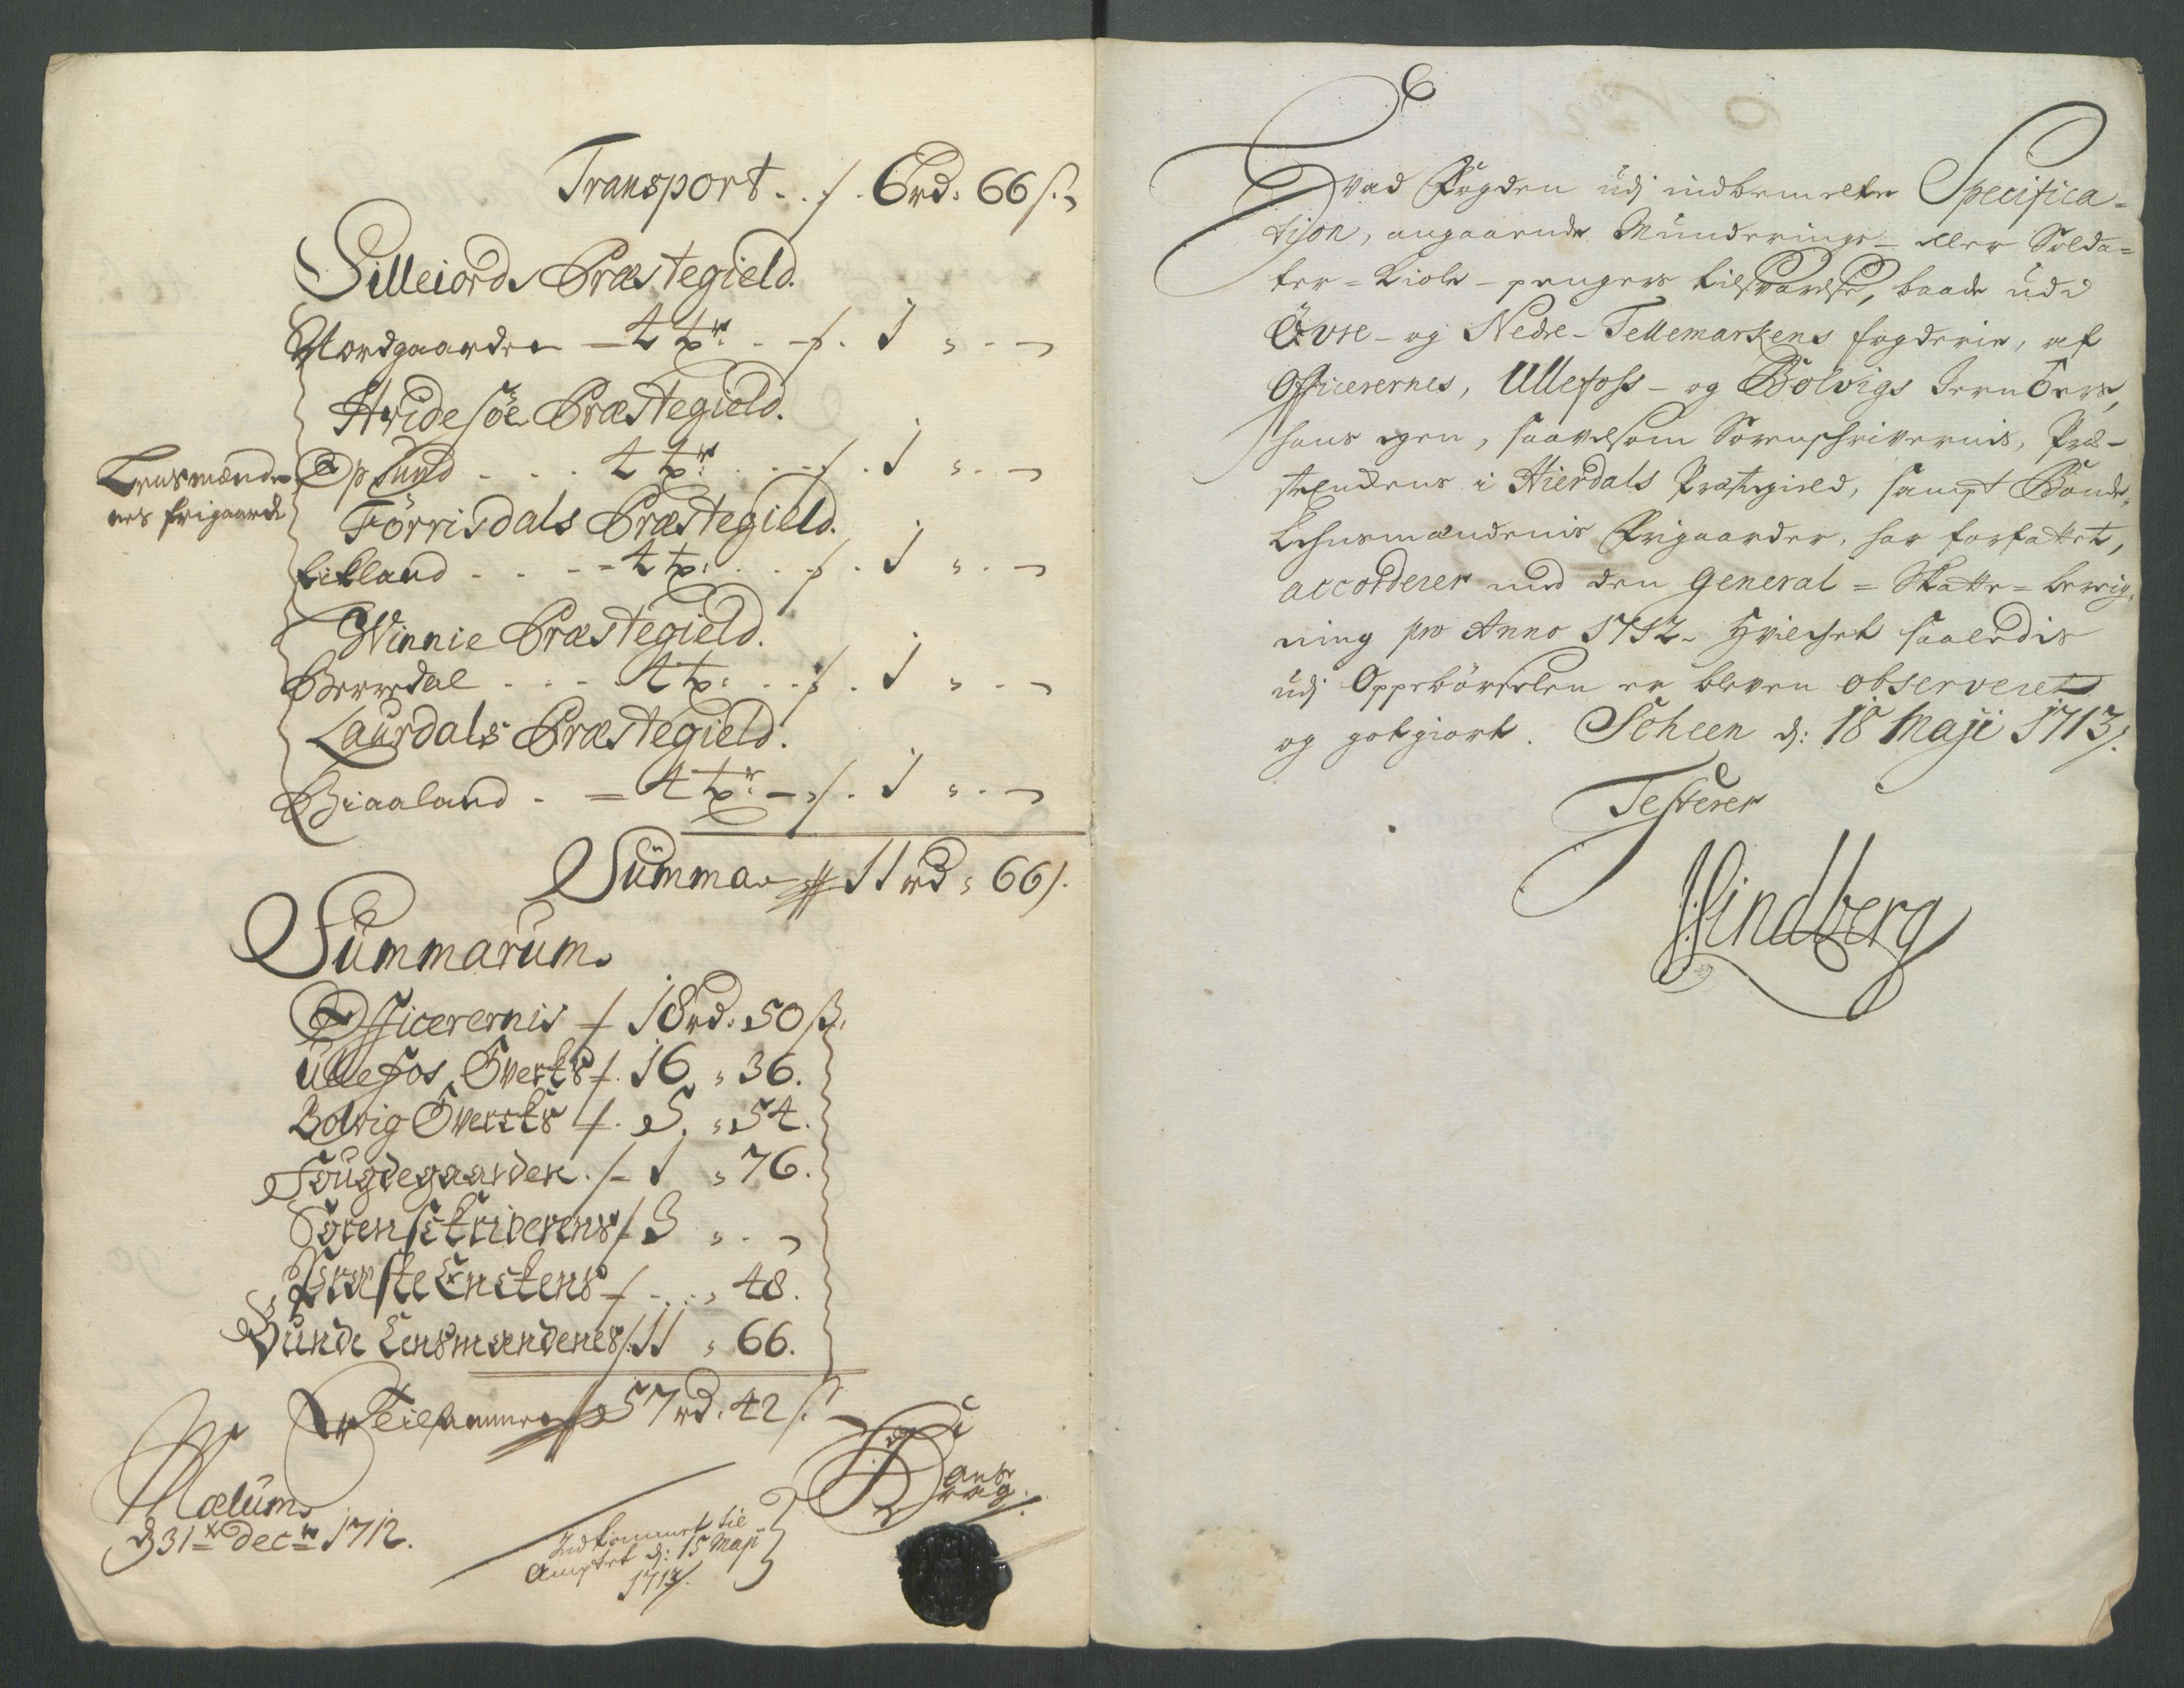 Transport - . f . 6rd. 66 s.
Silleiords Præstegield.
Nordgaarden - 4 tr. - f. 1 " . -
Hvidesøe Præstegield.
Lensmænde-
nes frigaarde
Opsund . . . 4 tr. . - f. 1 " . -
Førrisdals Præstegield.
Eikland . . . - 4 t: . . f. 1 " . -
Winnie Præstegield.
Berredal . . . 4 t: . . f. 1 " . -
Laurdals Præstegield.
Biaaland . = 4 tr: - f. 1 " . -
Summa 11 rd " 66 s.
Summarum.
Officerernis f 18rd. 50 s.
Ullefos Øverks f. 16 " 36.
Bolvig Øvercks f. 5. " 54.
Fougdegaarden . f 1 " 76.
Sorenskriverens f 3 " . -
Præste Enckens f - . . " 48.
Bunde Lensmændenes f. 11 " 66.
Er Tilsammen 57 rd. 42 s.
Mælum
d 31te Decbr 1712.
Indkommet til
Amptet d: 15 Maji
1713.
Hvad Fogden udj indbemelte Specifica-
tion, angaaende Munderings- eller Solda-
ter-Kiole-pengers tilsvarelse, baade udi
Øvre- og Nedre-Tellemarkens fogderie, af
Officerernes, Ullefoss- og Bolvigs Jern
hans egen, saavelsom Sorenskrivernis, Præ-
steenckens i Hierdals Præstegield, sampt Bonde-
Lehnsmændenis Frigaarder, har forfattet,
accorderer med den General-Skatte-Berig-
ning pro Anno 1712. Hvilchet saaledis
udj Oppebørselen er bleven observeret
og gotgiort. Scheen d: 18 Maji 1713.
Testerer
Lindberg